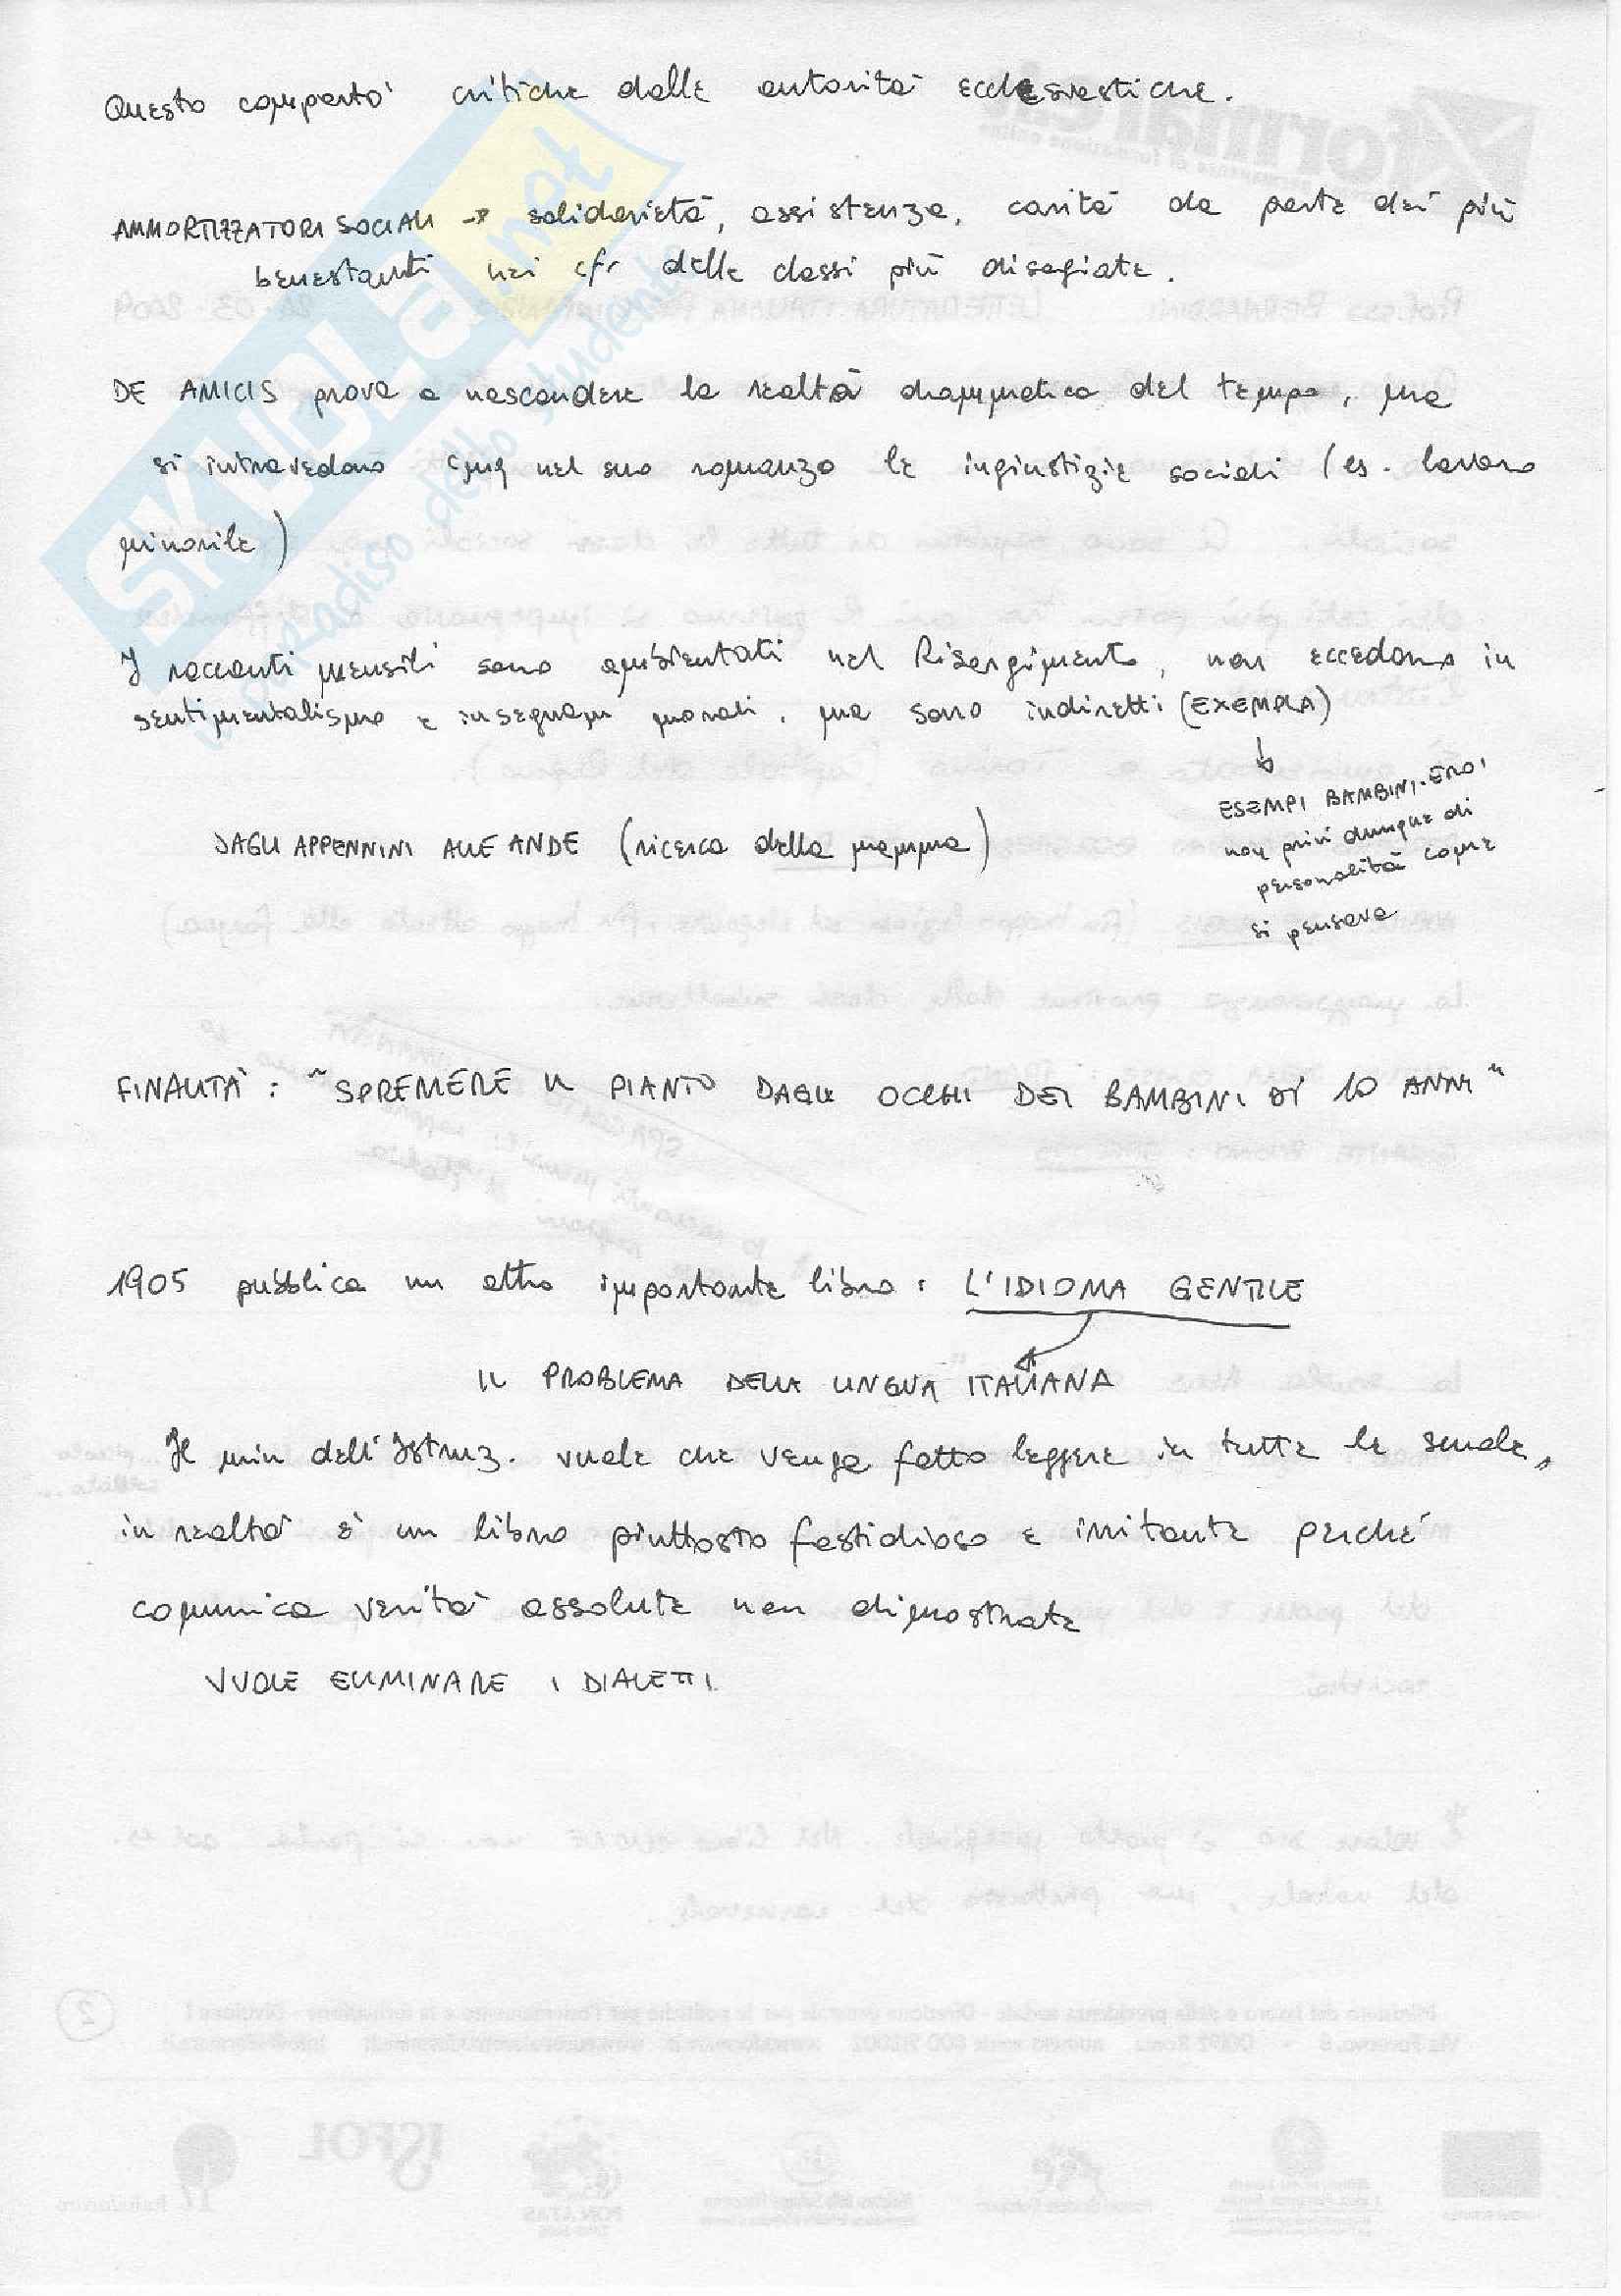 Questo comportò critiche dalle autorità ecclesiastiche.
AMMORTIZZATORI SOCIALI → solidarietà, assistenza, carità da parte dei più
benestanti nei cfr delle classi più disagiate.
DE AMICIS prova a nascondere la realtà drammatica del tempo, ma
si intravedono cmq nel suo romanzo le ingiustizie sociali (es. lavoro
minorile)
I racconti mensili sono ambientati nel Risorgimento, non eccedono in
sentimentalismo e insegnam morali, ma sono indiretti (EXEMPLA)
↓
ESEMPI BAMBINI-EROI
non privi dunque di
personalità come
si pensava
DAGLI APPENNINI ALLE ANDE (ricerca della mamma)
FINALITÀ: "SPREMERE IL PIANTO DAGLI OCCHI DEI BAMBINI DI 10 ANNI"
1905 pubblica un altro importante libro: L'IDIOMA GENTILE
IL PROBLEMA DELLA LINGUA ITALIANA
Il min dell'Istruz. vuole che venga fatto leggere in tutte le scuole,
in realtà è un libro piuttosto fastidioso e irritante perché
comunica verità assolute non dimostrate
VUOLE ELIMINARE I DIALETTI.
SKUOLA.net
il paradiso dello studente